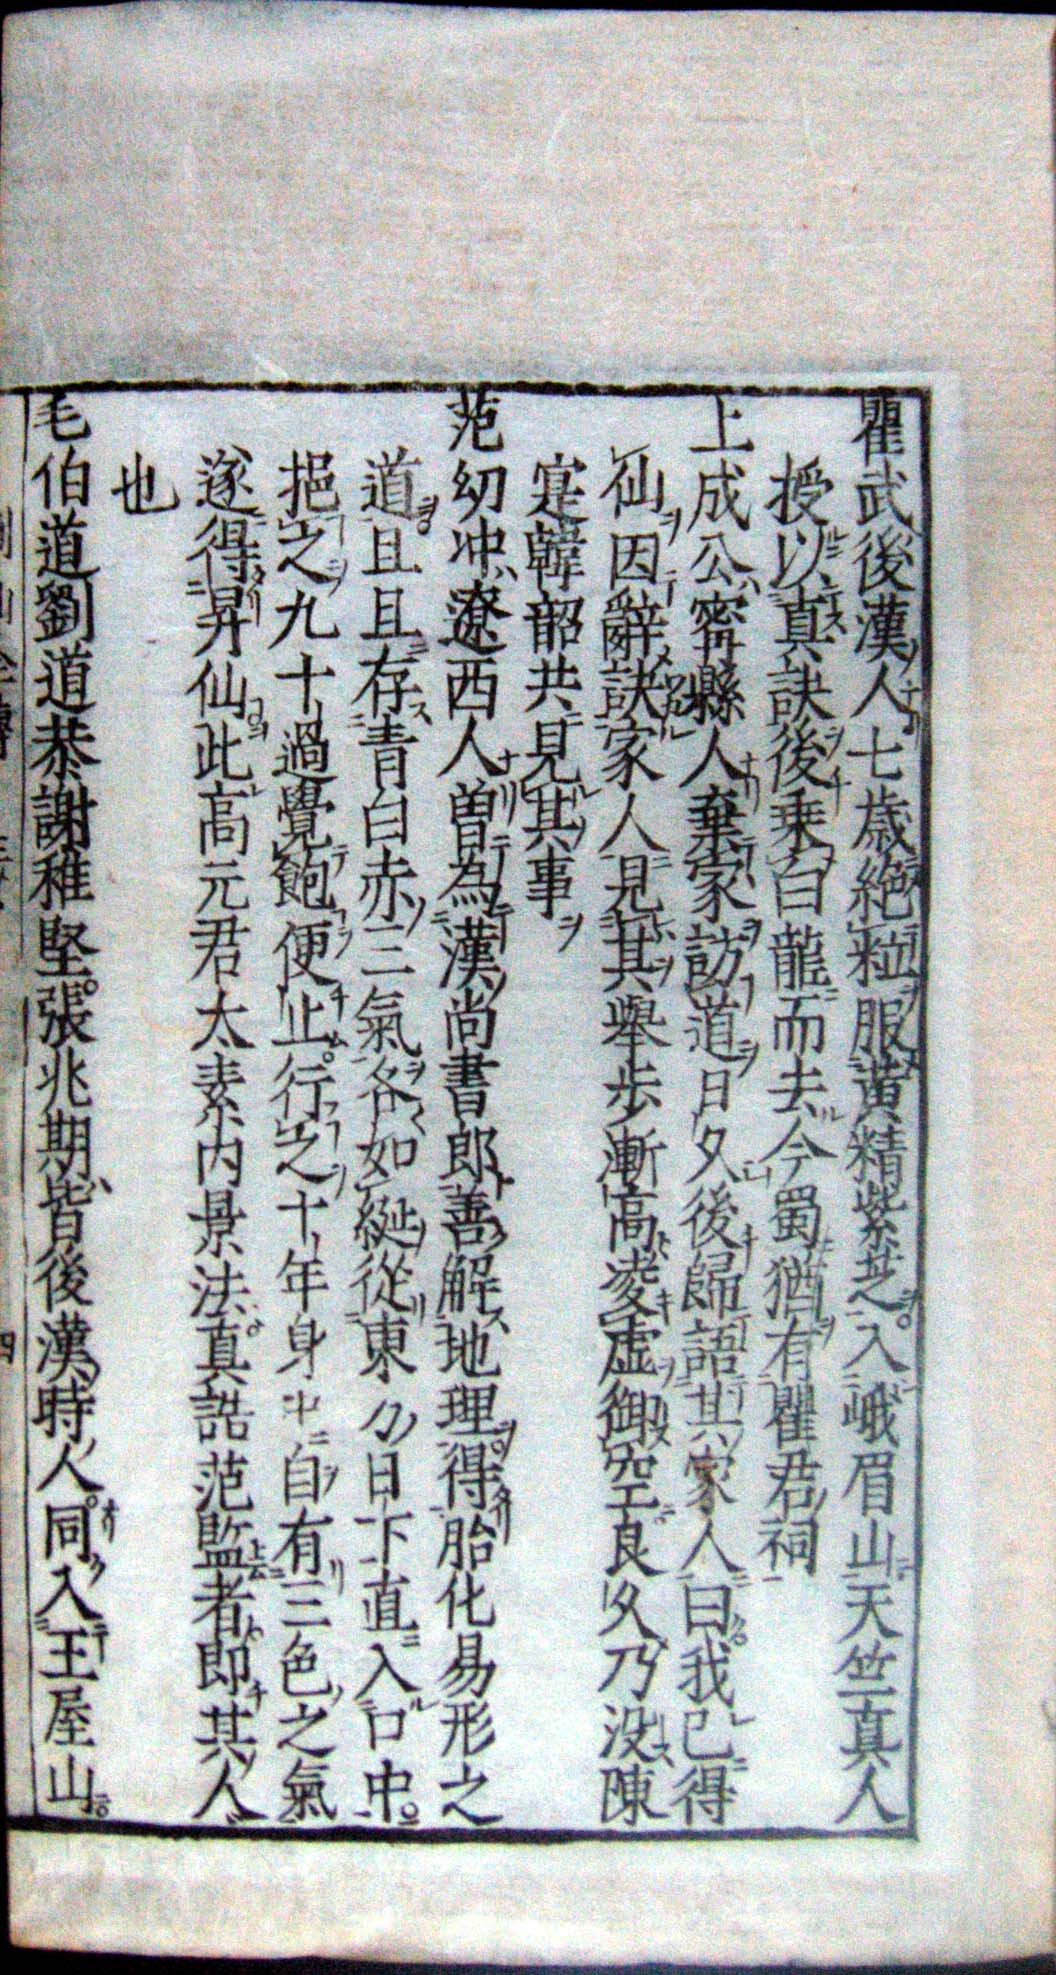 瞿武後漢人七歳絶粒服黄精紫芝入峨眉山天竺真人
授以真訣後乗白龍而去今蜀猶有瞿君祠
上成公密縣人棄家訪道日久後歸語其家人曰我已得
仙因辭訣家人見其擧歩漸高凌虚御空良久乃没陳
寔韓韶共見其事
范幼冲遼西人曽為漢尚書郎善解地理得胎化易形之
道且且存青白赤三氣各如綖從東方日下直入口中
挹之九十過覺飽便止行之十年身中自有三色之氣
遂得昇仙此高元君太素内景法真誥范監者即其人
也
毛伯道劉道恭謝稚堅張兆期皆後漢時人同入王屋山
四